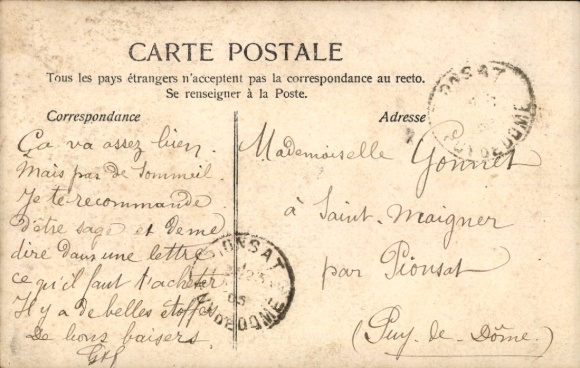 CARTE POSTALE
Tous les pays étrangers n'acceptent pas la correspondance au recto.
Se renseigner à la Poste.
Correspondance
Ça va assez bien.
Mais pas de Sommeil.
Je te recommande
d'être sage et de me
dire dans une lettre
ce qu'il faut t'acheter
Il y a de belles étoffes
De bons baisers.
Adresse
Mademoiselle Gonnet
à Saint-Maigner
par Pionsat
(Puy-de-Dôme.)
PIONSAT
PUY DE DOME
PIONSAT
05
PUY DE DOME